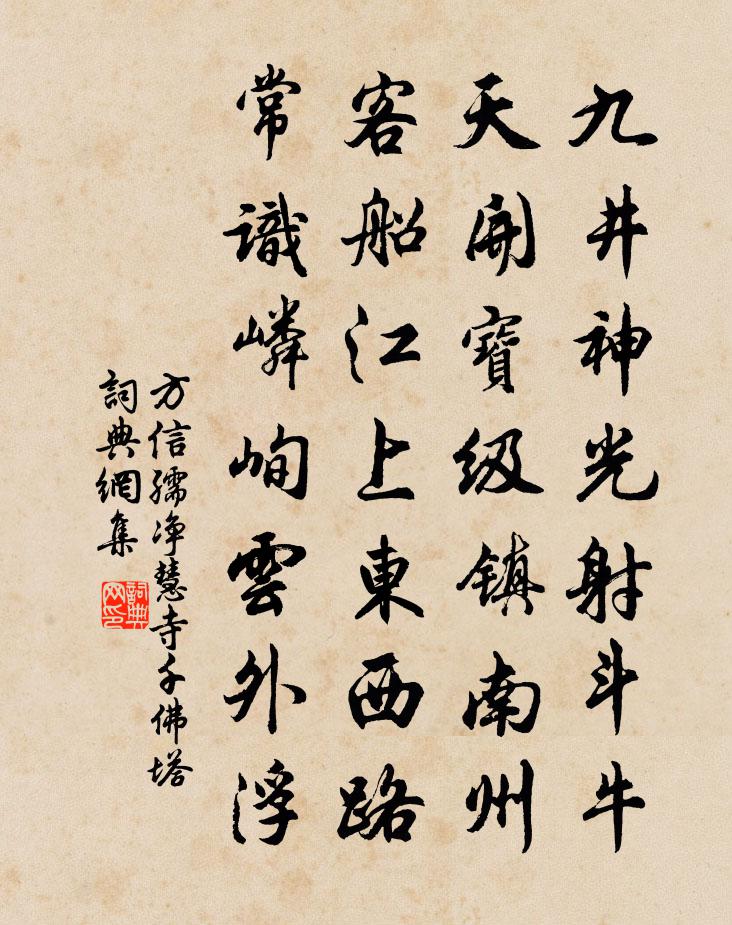 九井神光射斗牛
天開寶級鎮南州
客船江上東西路
常識嶙峋雲外浮
方信孺净慧寺千佛塔
詞典網集
詞典网印